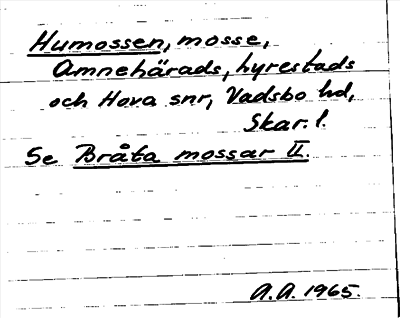 Humossen, mosse,
Amnehärads, hyrestads
och Hova snr, Vadsbo hd,
Skar. l.
Se Bråta mossar II.
A.A. 1965.